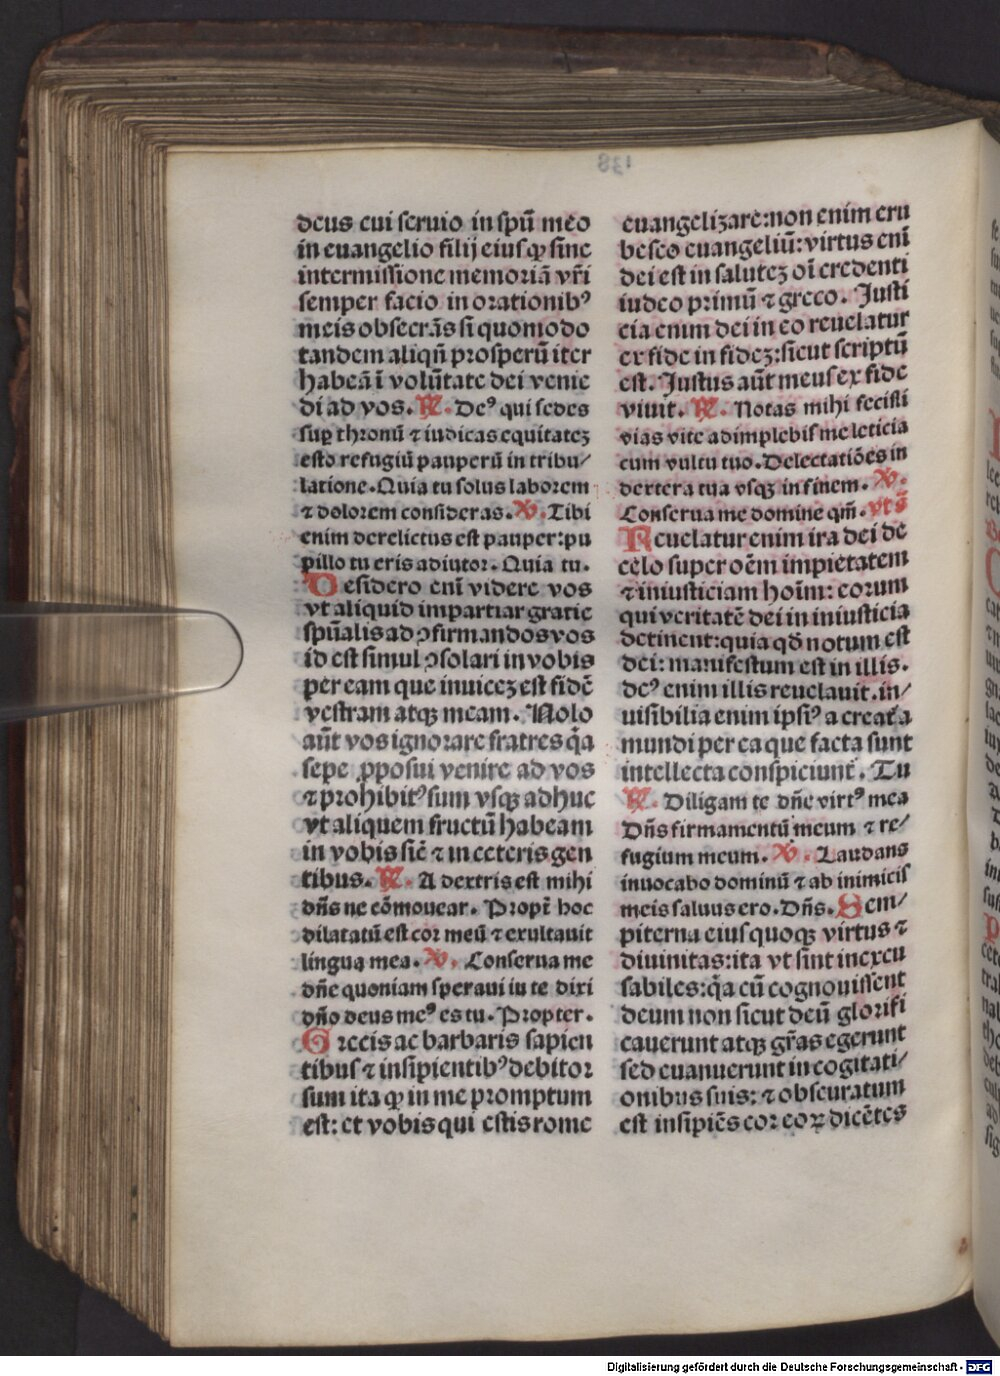 138
deus cui seruio in spū meo
in euangelio filij eius ꝙ sine
intermissione memoriā vr̄i
semper facio in orationibꝰ
meis obsecrās si quomodo
tandem aliqñ prosperū iter
habeā ī volūtate dei venie
di ad vos. ℟. Deꝰ qui sedes
suꝑ thronū ⁊ iudicas equitatez
esto refugiū pauperū in tribu/
latione. Quia tu solus laborem
⁊ dolorem consideras. ℣. Tibi
enim derelictus est pauper: pu
pillo tu eris adiutor. Quia tu.
Desidero enī videre vos
vt aliquid impartiar gratie
spūalis ad ꝯfirmandos vos
id est simul ꝯsolari in vobis
per eam que inuicez est fidē
vestram atqꝫ meam. Nolo
aūt vos ignorare fratres q̄a
sepe ꝓposui venire ad vos
⁊ prohibitꝰ sum vsqꝫ adhuc
vt aliquem fructū habeam
in vobis sic̄ ⁊ in ceteris gen
tibus. ℟. A dextris est mihi
dn̄s ne cōmouear. Propt̄ hoc
dilatatū est cor meū ⁊ exultauit
lingua mea. ℣. Conserua me
dn̄e quoniam speraui in te dixi
dn̄o deus meꝰ es tu. Propter.
Grecis ac barbaris sapien
tibus ⁊ insipientibꝰ debitor
sum ita ꝙ in me promptum
est: et vobis qui estis rome
euangelizare: non enim eru
besco euangeliū: virtus enī
dei est in salutez oī credenti
iudeo primū ⁊ greco. Justi
cia enim dei in eo reuelatur
ex fide in fidez: sicut scriptū
est. Justus aūt meus ex fide
viuit. ℟. Notas mihi fecisti
vias vite adimplebis me leticia
cum vultu tuo. Delectatiōes in
dextera tua vsqꝫ in finem. ℣.
Conserua me domine qm̄. vt s̄
Reuelatur enim ira dei de
celo super oēm impietatem
⁊ iniusticiam hoīm: eorum
qui veritatē dei in iniusticia
detinent: quia qđ notum est
dei: manifestum est in illis.
deꝰ enim illis reuelauit. in/
uisibilia enim ipsiꝰ a creat̾a
mundi per ea que facta sunt
intellecta conspiciunt̾. Tu
℟. Diligam te dn̄e virtꝰ mea
Dn̄s firmamentū meum ⁊ re/
fugium meum. ℣. Laudans
inuocabo dominū ⁊ ab inimicis
meis saluus ero. Dn̄s. Sem/
piterna eius quoqꝫ virtus ⁊
diuinitas: ita vt sint inexcu
sabiles: q̄a cū cognouissent
deum non sicut deū glorifi
cauerunt atqꝫ gr̄as egerunt
sed euanuerunt in cogitati/
onibus suis: ⁊ obscuratum
est insipiēs cor eoꝝ dicētes
Digitalisierung gefördert durch die Deutsche Forschungsgemeinschaft - DFG